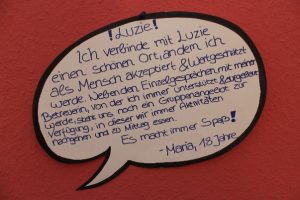 ! Luzie !
Ich verbinde mit Luzie
einen schönen Ort, an dem ich
als Mensch akzeptiert & wertgeschätzt
werde. Neben den Einzelgesprächen mit meiner
Betreuerin, von der ich immer unterstützt & aufgebaut
werde, steht uns noch ein Gruppenangebot zur
Verfügung, in dieser wir immer Aktivitäten
nachgehen und zu Mittag essen.
Es macht immer Spaß!
- Maria, 18 Jahre